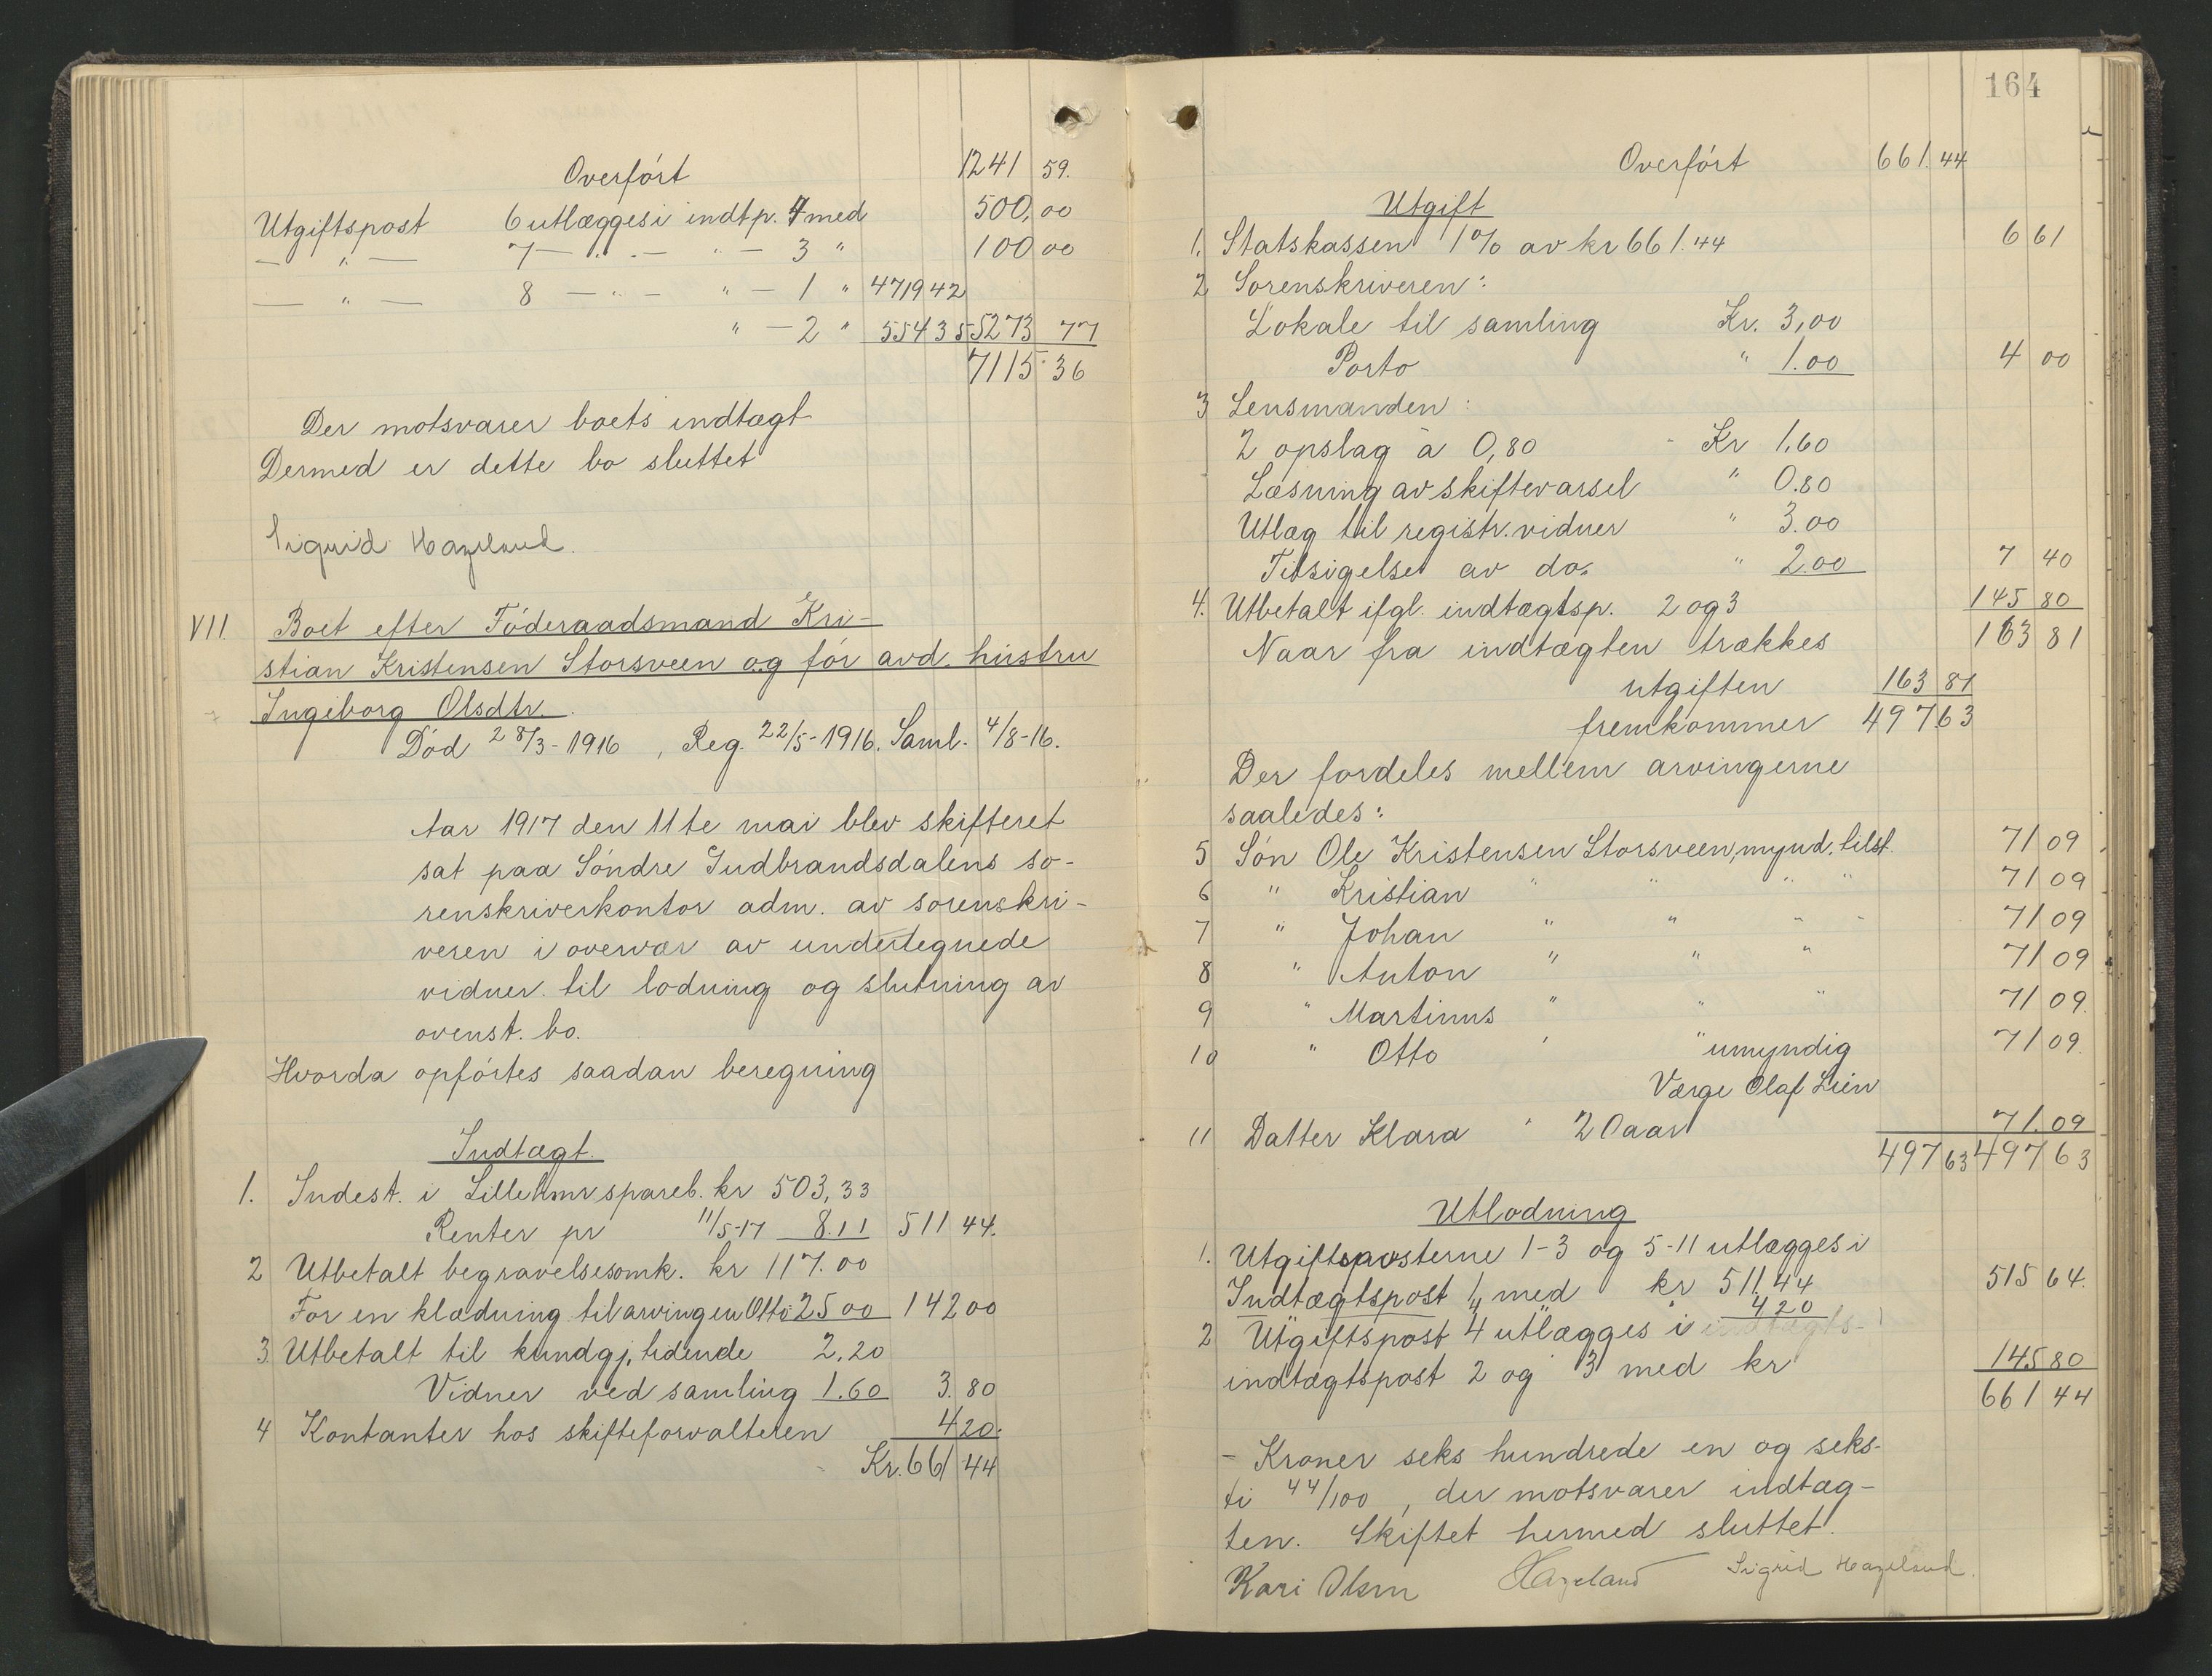 Overført 1241 59.
Utgiftspost 6 utlægges i indtp. 4 med 500,00
— " — 7 — " — " — 3 " 100 00
— " — 8 — " — " — 1 " 4719 42
" — 2 " 554 35 5273 77
7115 36
Der motsvarer boets indtægt
Dermed er dette bo sluttet
Sigrid Hazeland.
VII. Boet efter Føderaadsmand Kri-
stian Kristensen Storsveen og før avd. hustru
Ingeborg Olsdtr.
Død 28/3-1916, Reg. 22/5-1916. Saml. 4/8-16.
Aar 1917 den 11te mai blev skifteret
sat paa Søndre Gudbrandsdalens so-
renskriverkontor adm. av sorenskri-
veren i overvær av undertegnede
vidner til lodning og slutning av
ovenst. bo.
Hvorda opførtes saadan beregning
Indtægt.
1. Indest. i Lillehmr spareb. kr 503,33
Renter pr 11/5-17 8.11 511 44.
2 Utbetalt begravelsesomk. kr 117.00
For en klædning til arvingen Otto 25 00 142 00
3 Utbetalt til kundgj. tidende 2,20
Vidner ved samling 1.60 3.80
4 Kontanter hos skifteforvalteren 4 20.
Kr. 661 44
164
Overført 661.44
Utgift
1. Statskassen 1% av kr 661.44 6 61
2 Sorenskriveren:
Lokale til samling Kr. 3,00
Porto " 1.00 4 00
3 Lensmanden:
2 opslag à 0,80 - Kr 1,60
Læsning av skiftevarsel " 0.80
Utlæg til registr. vidner " 3.00
Tilsigelse av do. " 2.00 7 40
4. Utbetalt ifgl. indtægtsp. 2 og 3 145 80
Naar fra indtægten trækkes 163 81
utgiften 163 81
fremkommer 497 63
Der fordeles mellem arvingerne
saaledes:
5 Søn Ole Kristensen Storsveen, mynd. tilst. 71 09
6 " Kristian " " " " 71 09
7 " Johan " " " " 71 09
8 " Anton " " " 71 09
9 " Martinus " " " 71 09.
10 " Otto " " umyndig 71 09.
Værge Olaf Lien
11 Datter Klara " 20 aar 71.09
497 63 497 63
Utlodning
1. Utgiftsposterne 1-3 og 5-11 utlægges i
Indtægtspost 1 med kr 511.44 515 64.
" 4 " " 4 20
2 Utgiftspost 4 utlægges i
indtægtspost 2 og 3 med kr 145 80
661 44
- Kroner seks hundrede en og seks-
ti 44/100, der motsvarer indtæg-
ten. Skiftet hermed sluttet.
Kari Olsen Hazeland Sigrid Hazeland.